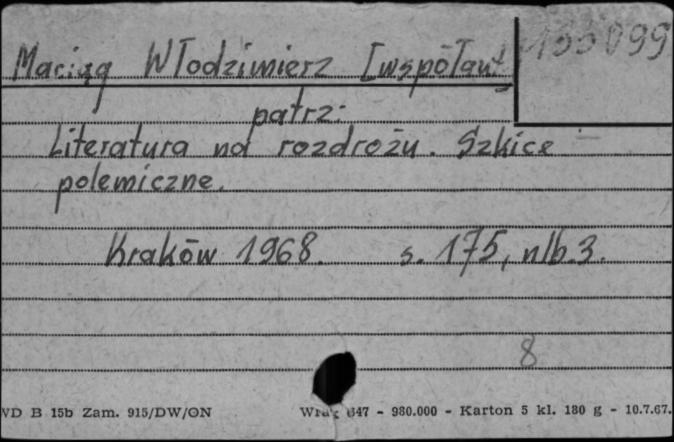 Maciąg Włodzimierz [współaut.
133099
patrz:
Literatura na rozdrożu. Szkice
polemiczne.
Kraków 1968. s. 175, nlb. 3.
8
WD B 15b Zam. 915/DW/ON 647 - 980.000 - Karton 5 kl. 180 g - 10.7.67.